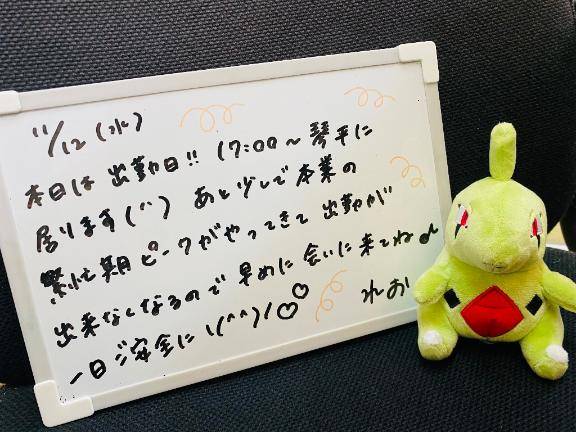 11/12(水)
本日は出勤日!! 17:00〜琴平に
居ります(^^) あと少しで本業の
繁忙期ピークがやってきて出勤が
出来なくなるので早めに会いに来てね♪
一日ご安全に\(^^)/♡♡ れお